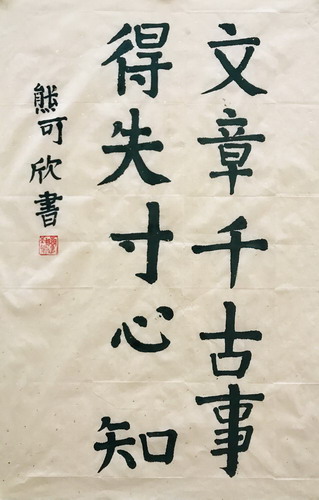 文章千古事
得失寸心知
熊可欣書